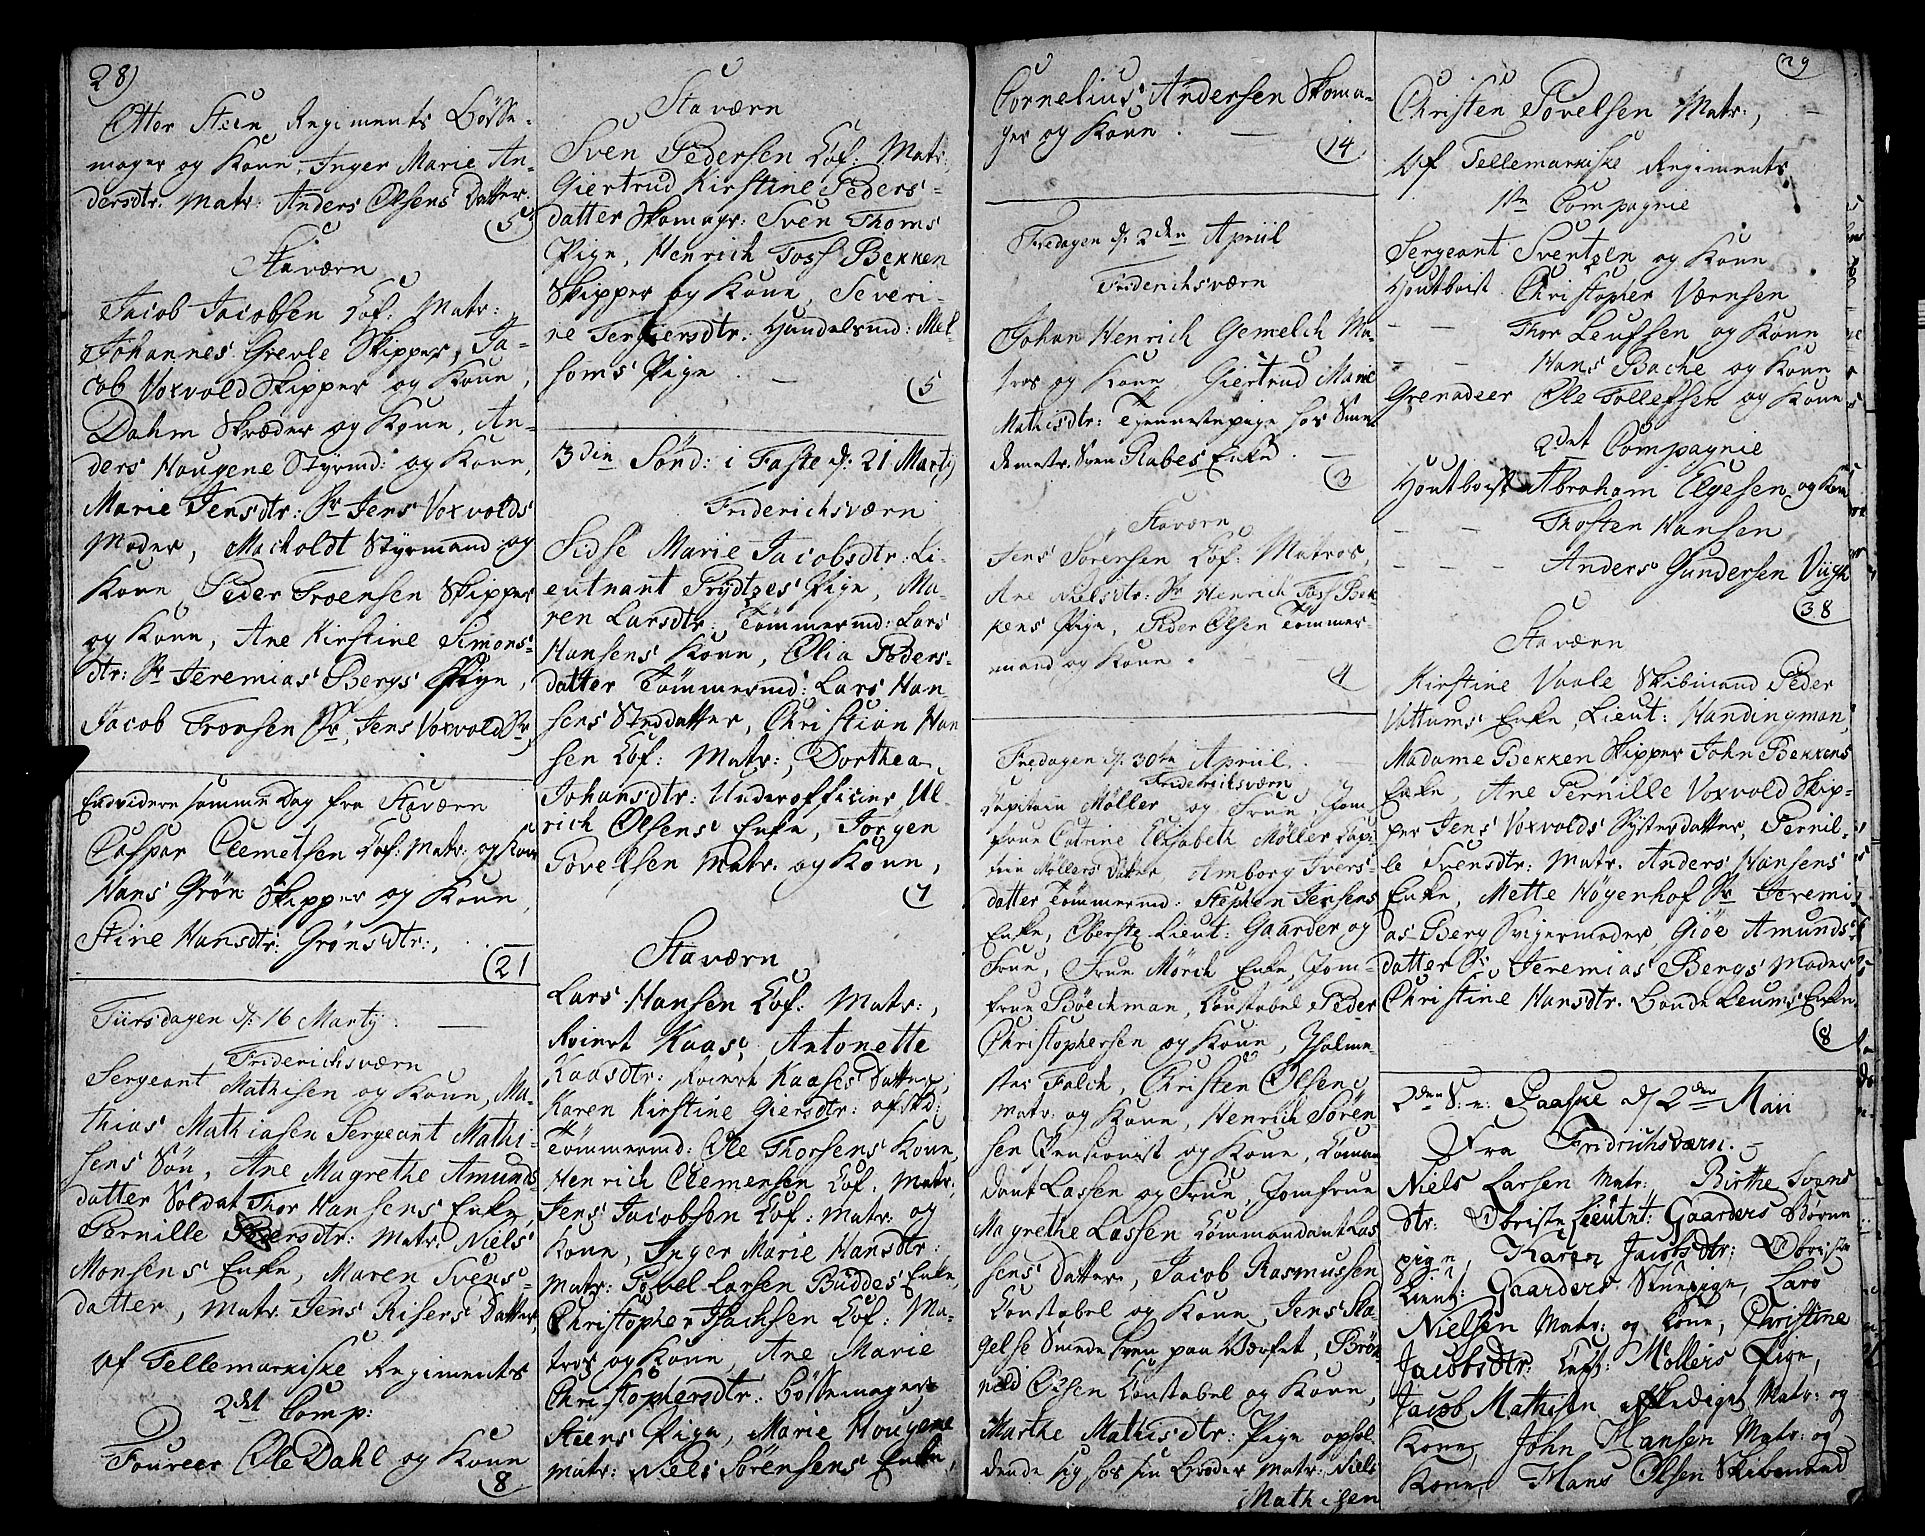 28)
Otter Steen Regiments Bösse-
mager og Kone, Inger Marie An-
dersdtr. Matr: Anders Olsens Datter.
5
Staværn
Jacob Jacobsen Løf: Matr:
Johannes Grevle Skipper, Ja-
cob Voxvold Skipper og Kone,
Dahm Skræder og Kone, An-
ders Hougene Styrmd: og Kone,
Marie Jensdtr: Sr Jens Voxvolds
Moder, Macholdt Styrmand og
Kone, Peder Troensen Skipper
og Kone, Ane Kirstine Simons-
dtr: Sr Jeremias Bergs Pige,
Jacob Tronsen Sr, Jens Voxvold Sr,
Endvidere samme Dag fra Staværn
Caspar Clemetsen Løf: Matr: og Kone
Hans Grön Skipper og Kone,
Stine Hansdtr: Gröns dtr:,
21
Tiirsdagen d: 16 Martij
Friderichsværn
Sergeant Mathisen og Kone, Ma-
thias Mathiasen Sergeant Mathi-
sens Søn, Ane Magrethe Amunds
datter Soldat Thor Hansens Enke,
Pernille Persdtr: Matr: Niels
Monsens Enke, Maren Svens-
datter, Matr: Jens Risers Datter,
Af Tellemarkiske Regiments
2det Comp:
Foureer Ole Dahl og Kone
8
Staværn
Sven Pedersen Løf: Matr:
Giertrud Kirstine Peders-
datter Skomagr: Sven Thoms
Pige, Henrich Foss Bekken
Skipper og Kone, Severi-
ne Tergersdtr: Handelsmd: Mel-
soms Pige
5
3die Sönd: i Faste d: 21 Martij
Friderichsværn
Sidse Marie Jacobsdtr: Li-
eutnant Prydtzes Pige, Ma-
ren Larsdtr: Tömmermd: Lars
Hansens Kone, Olia Peders-
datter Tömmermd: Lars Han-
sens Steddatter, Christian Han
sen Løf: Matr:, Dorthea
Johansdtr: Underofficier Ul-
rich Olsens Enke, Jörgen
Povelsen Matr: og Kone,
7
Staværn
Lars Hansen Løf: Matr:,
Reinert Kaas, Antonette
Kaasdtr: Reinert Kaases Datter,
Karen Kirstine Giersdtr: afskd:
Tömmermd: Ole Thorsens Kone
Henrich Clemensen Løf: Matr:
Jens Jacobsen Løf: Matr: og
Kone, Inger Marie Hansdtr:
Matr: Povel Larsen Buddes Enke,
Christopher Isachsen Løf: Ma-
tros og Kone, Ane Marie
Christophersdtr: Bössemager
Steens Pige, Marie Hougene
Matr: Niels Sörensens Enke,
Cornelius Andersen Skoma-
ger og Kone.
14
Fredagen d: 2den Apriil
Friderichsværn
Johan Henrich Gemelch Ma-
tros og Kone, Giertrud Marie
Mathisdtr: Tjennestepige hos Sme-
demstr: Sven Rabes Enke.
3
Staværn
Jens Sörensen Løf: Matros,
Ane Nielsdtr: Sr Henrich Foss Bek-
kens Pige, Peder Olsen Tömmer
mand og Kone.
4
Fredagen d: 30te Apriil
Friderichsværn
Capitain Möller og Frue, Jom-
frue Catrine Elisabeth Möller Capi-
tain Möllers Datter, Amborg Ivers-
datter Tömmermd: Stephen Jensens
Enke, Oberste Lieut: Gaarder og
Frue, Frue Mörch Enke, Jom-
frue Böeckman, Constabel Peder
Christophersen og Kone, Holme-
ster Falch, Christen Olsen
Matr: og Kone, Henrich Sören-
sen Pensionist og Kone, Comman
dant Lassen og Frue, Jomfrue
Magrethe Lassen Commandant Las
sens Datter, Jacob Rasmussen
Constabel og Kone, Jens Sla-
gelse Smede Sven paa Værftet, Brön-
nild Olsen Constabel og Kone,
Marthe Mathisdtr: Pige ophol
dende sig hos sin Broder Matr: Niels
Mathisen
29
Christen Povelsen Matr:,
Af Tellemarkiske Regiments
1te Compagnie
Sergeant Sventzen og Kone
Houtboist Christopher Værnsen
— — Thor Leufsen og Kone
— — Hans Bache og Kone
Grenadeer Ole Tollefsen og Kone
2det Compagnie
Houtboist Abraham Elgesen og Kone
— — Thosten Hansen
— — — Anders Gundersen Viigh
38
Staværn
Kirstine Vaale Skibmand Peder
Vattums Enke, Lieut: Handingman,
Madame Bekken Skipper John Bekkens
Enke, Ane Pernille Voxvold Skip-
per Jens Voxvolds Systerdatter, Pernil-
le Svensdtr: Matr: Anders Hansens
Enke, Mette Høgenhof Sr Jeremi
as Berg Svigermoder, Giöe Amunds
datter Sr: Jeremias Bergs Moder
Christine Hansdtr. Bonde Leums Enke
8
2den S: e: Paaske d 2den Maii
Fra Fridrichsværn.
Niels Larsen Matr: Birthe Svens
dtr: Obriste Lieutnt: Gaarders Börne
pige, Karen Jacobsdtr: Obriste
Lieut: Gaarders Stuepige, Lars
Nielsen Matr: og Kone, Christine
Jacobsdtr: Capt: Möllers Pige,
Jacob Mathisen afskediget Matr: og
Kone, John Hansen Matr: og
Kone, Hans Olsen Skibmand